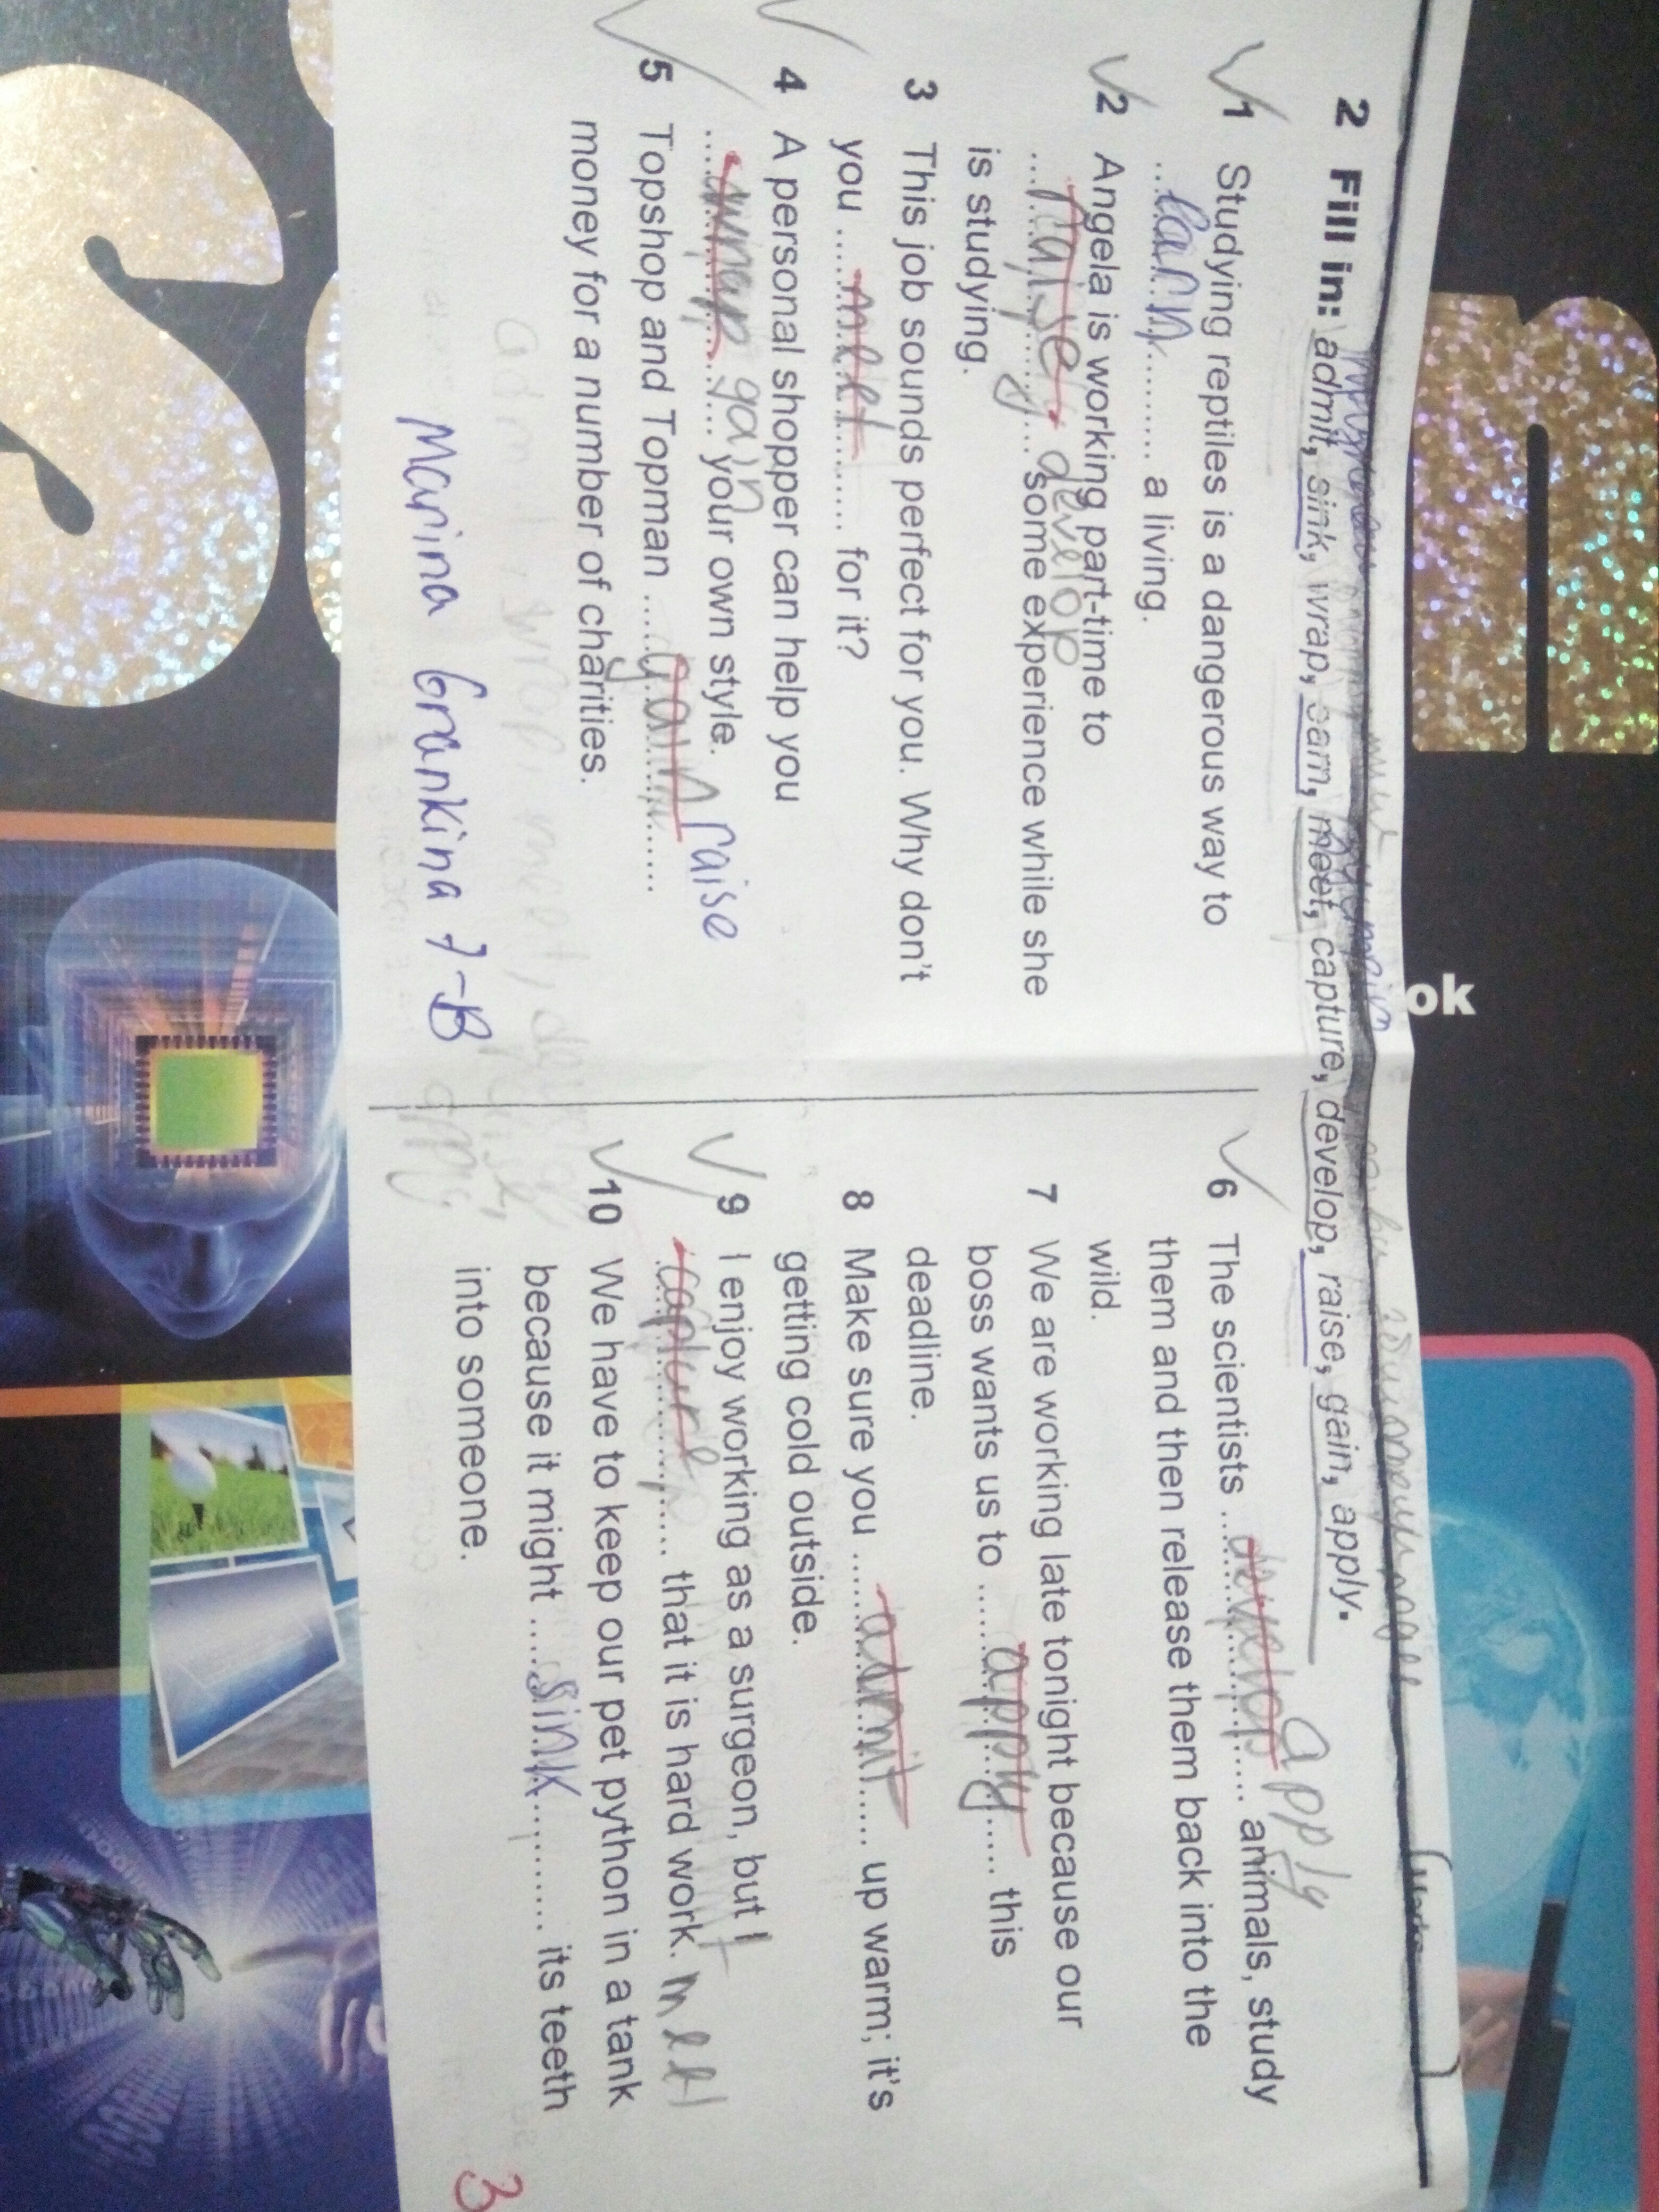 ok
2 Fill in: admit, sink, wrap, earn, meet, capture, develop, raise, gain, apply.
1 Studying reptiles is a dangerous way to
...earn.......... a living.
2 Angela is working part-time to
develop
...raise...... some experience while she
is studying.
3 This job sounds perfect for you. Why don't
you ......meet.......... for it?
4 A personal shopper can help you
gain
....wrap...... your own style.
raise
5 Topshop and Topman ....gain..........
money for a number of charities.
Marina Grankina 7-B
apply
6 The scientists ....develop.......... animals, study
them and then release them back into the
wild.
7 We are working late tonight because our
boss wants us to ......apply...... this
deadline.
8 Make sure you ......admit...... up warm; it's
getting cold outside.
9 I enjoy working as a surgeon, but I
..capture.......... that it is hard work. meet
10 We have to keep our pet python in a tank
because it might ....sink.......... its teeth
into someone.
3